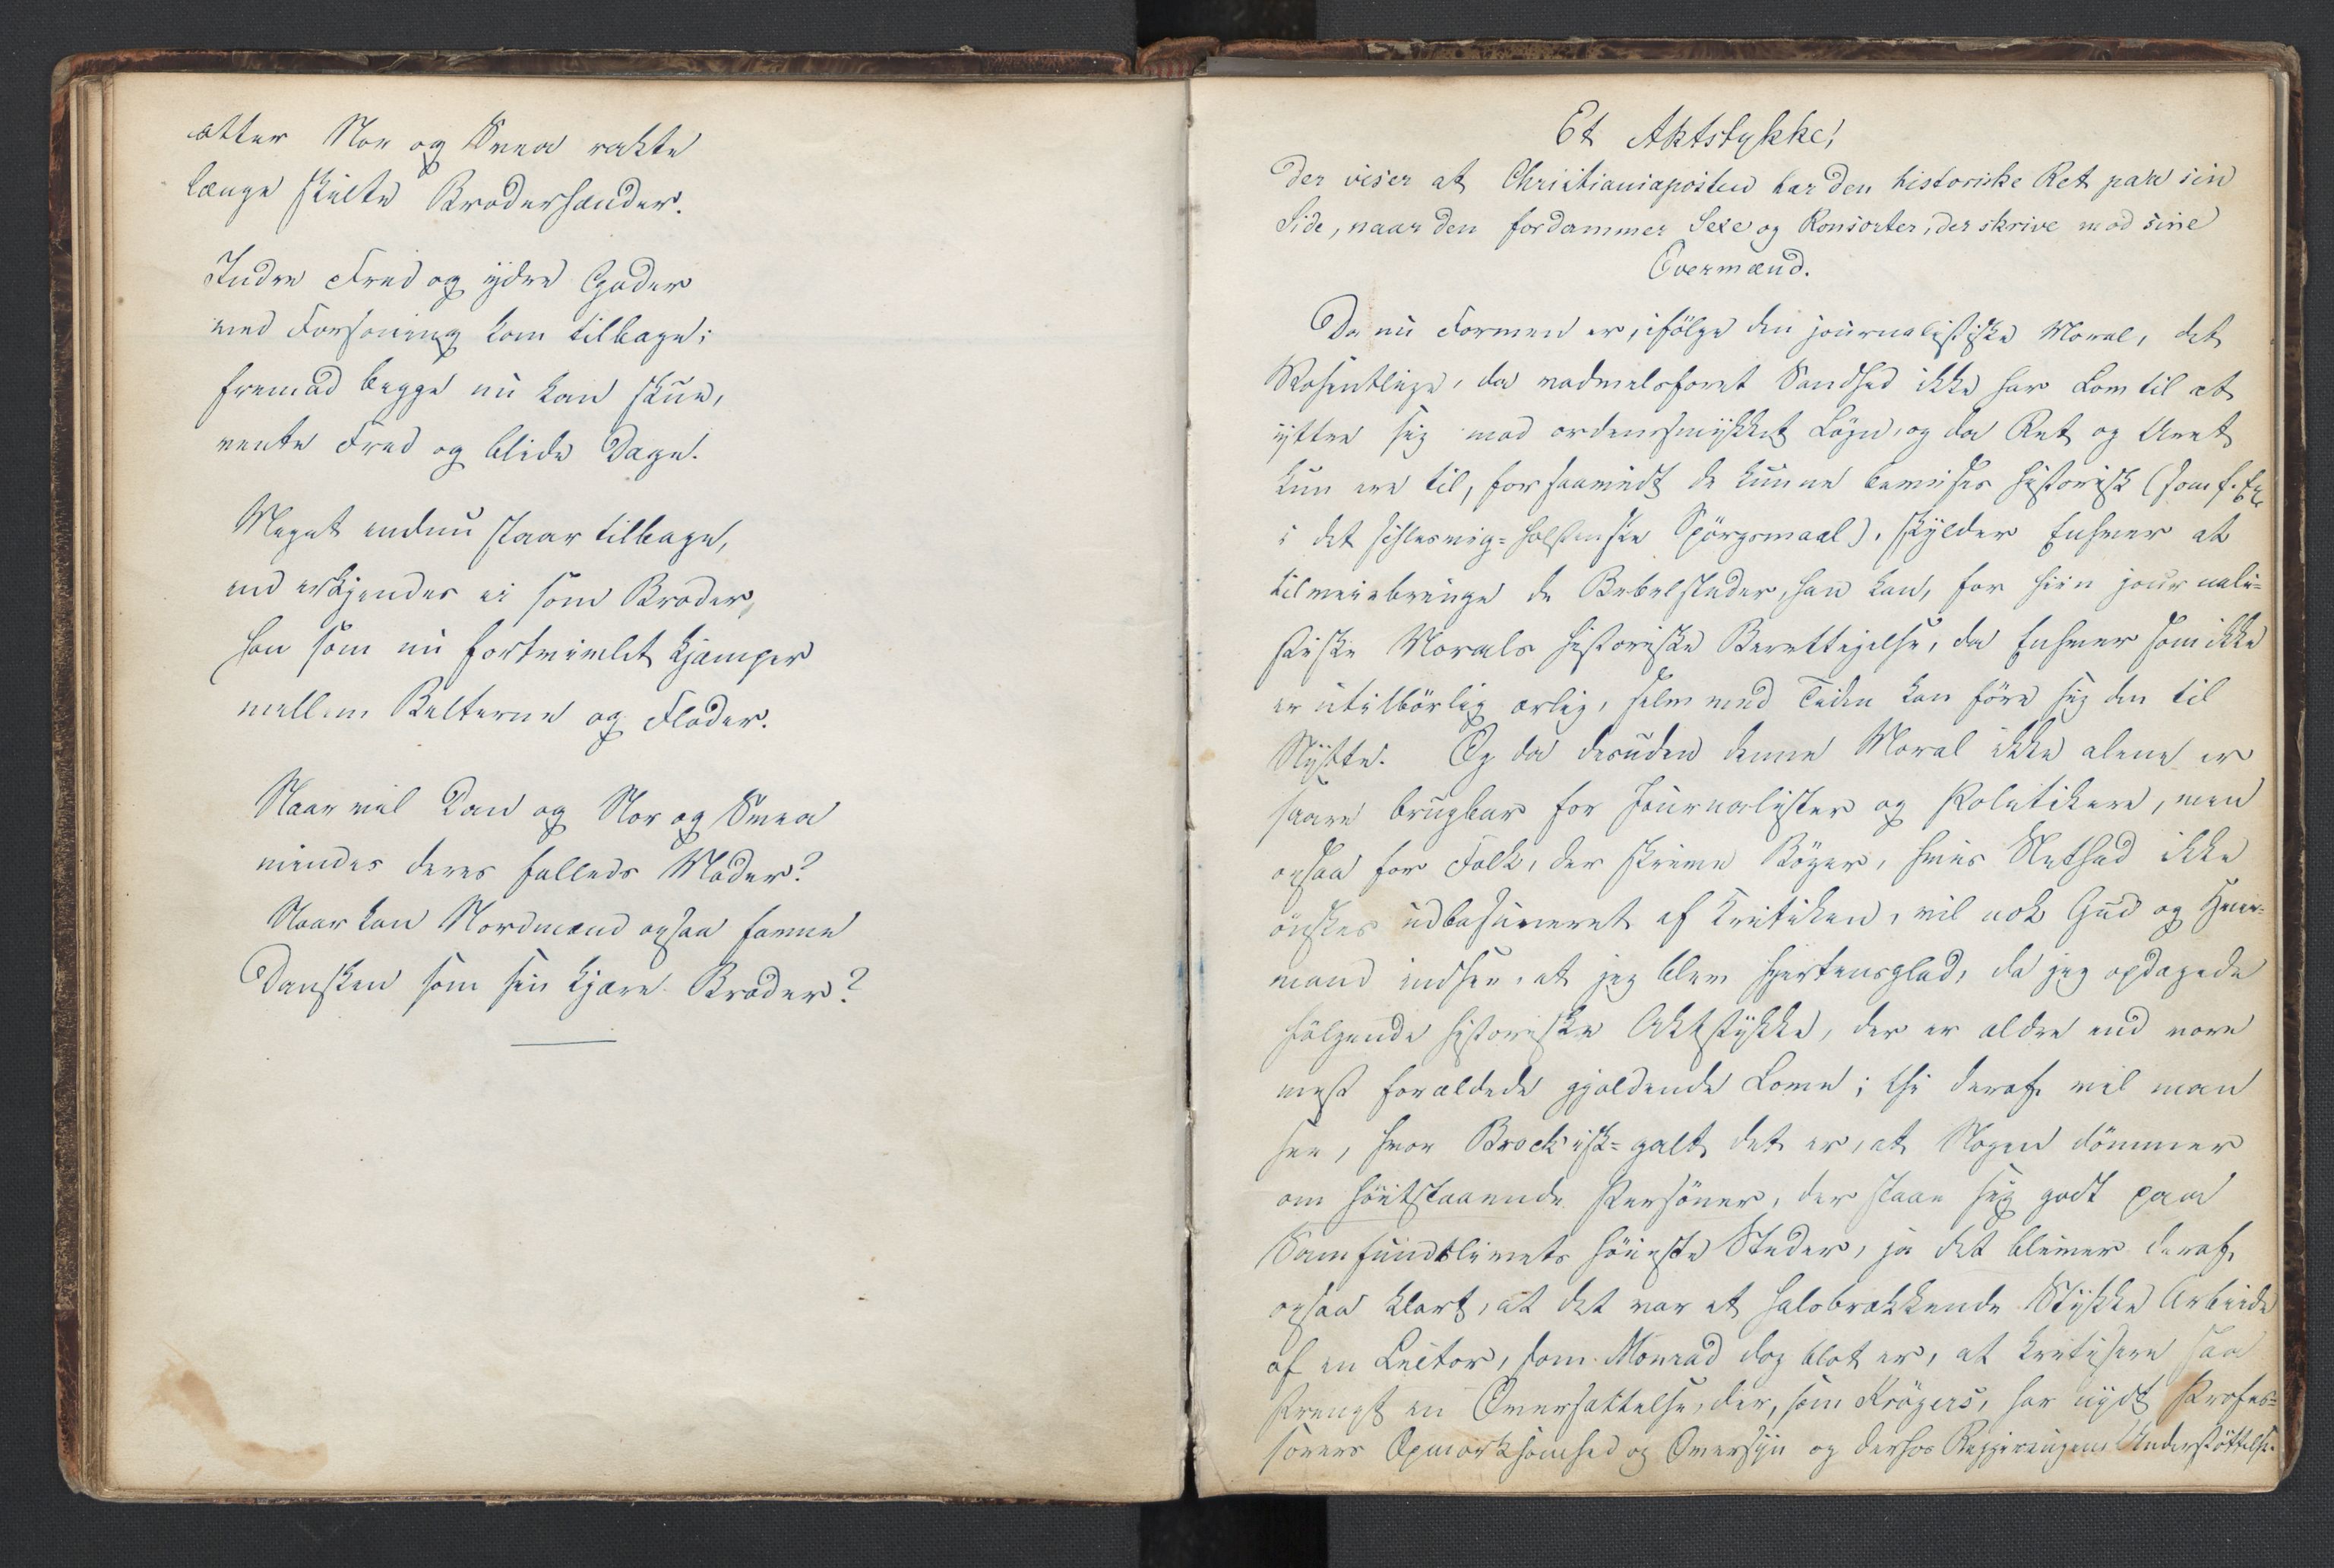 atter Nor og Svea rakte
længe skilte Broderhænder.
Indre Fred og ydre Goder
med Forsoning kom tilbage;
fremad begge nu kan skue,
vente Fred og blide Dage.
Meget endnu staar tilbage,
end erkjendes ei som Broder,
han som nu fortvivlet kjæmper
mellem Belterne og Floder.
Naar vil Dan og Nor og Svea
mindes deres fælleds Moder?
Naar kan Nordmænd ogsaa favne
Dansken som sin kjære Broder?
Et Aktstykke,
der viser at Christianiaposten har den historiske Ret paa sin
Side, naar den fordømmer Sexe og Konsorter, der skrive mod sine
Overmænd.
Da nu Formen er, ifölge den journalistiske Moral, det
Væsentlige, da vadmelsforet Sandhed ikke har Lov til at
yttre sig mod ordenssmykket Lögn, og da Ret og Uret
kun ere til, forsaavidt de kunne bevises historisk (som f. Ex
i det schlesvig-holstenske Spörgsmaal), skylder Enhver at
tilveiebringe de Bebelsteder, han kan, for hiin journali-
stiske Morals historiske Berettigelse, da Enhver som ikke
er utilbörlig ærlig, selv med Tiden kan före sig den til
Nytte. Og da desuden denne Moral ikke alene er
saare brugbar for Journalister og Politikere, men
ogsaa for Folk, der skrive Böger, hvis Slethed ikke
önskes udbasuneret af Kritiken, vil nok Gud og Hver-
mand indsee, at jeg blev hjertensglad, da jeg opdagede
fölgende historiske Aktstykke, der er ældre end vore
mest forældede gjældende Love; thi deraf vil man
see, hvor Brock'isk-galt det er, at Nogen dömmer
om höitstaaende Personer, der staae sig godt paa
Samfundslivets höieste Steder, ja det bliver deraf
ogsaa klart, at det var et halsbrækkende Stykke Arbeide
af en Lector, som Monrad dog blot er, at kritisere saa
strengt en Oversættelse, der, som Krögers, har nydt Profes-
sorers Opmærksomhed og Oversyn og derhos Regjeringens Understöttelse.